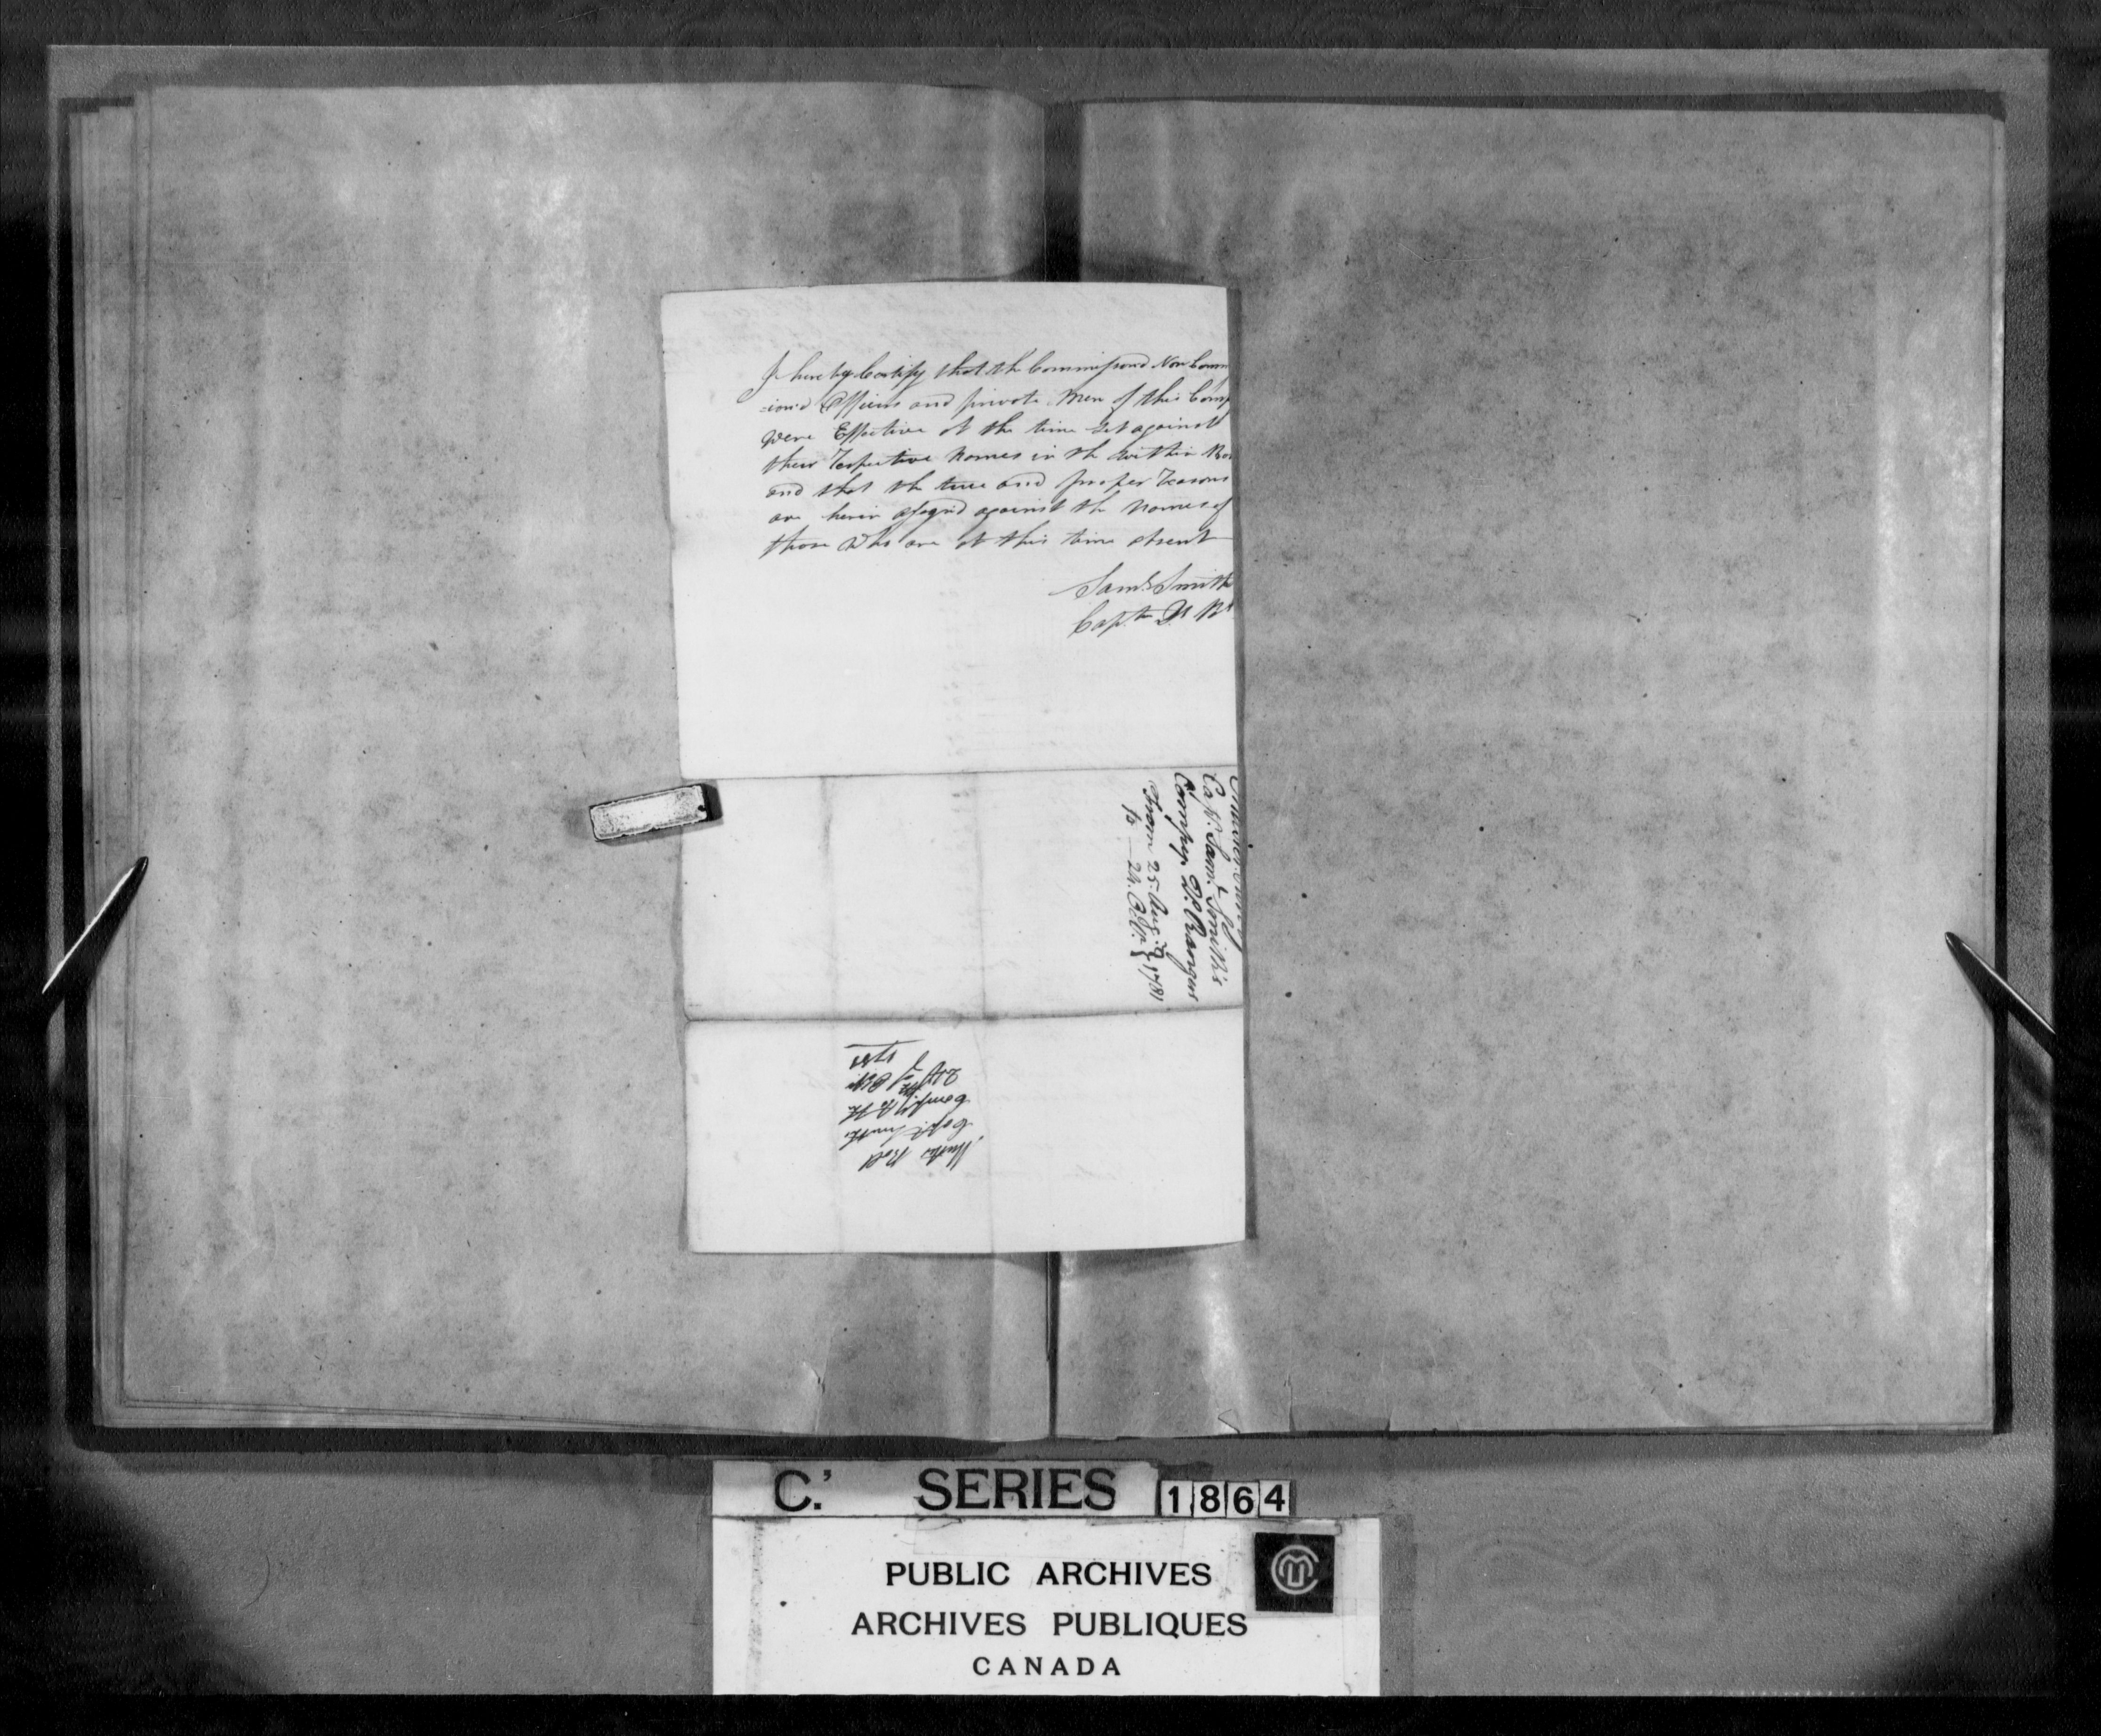 I hereby Certify that the Commissiond Non Comm
=ion'd Officers and private Men of this Comp
were Effective at the time Set against
their respective Names in the within Ro
and that the true and proper reasons
are herin assign'd against the Names of
those who are at this time absent
Sam.l Smith
Cap.tn Q.s R.
Capt. Sam.l Smith's
Compy. Q.s Rangers
From 25 Aug.t } 1781
to — 24. Octr. }
Muster Roll
Capt. Smith
Compy
24th of Octr.
1781
C.' SERIES 1864
PUBLIC ARCHIVES
ARCHIVES PUBLIQUES
CANADA